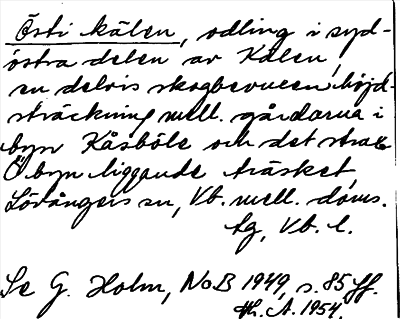 Östi kälen, odling i syd-
östra delen av Kälen,
en delvis skogbevuxen höjd-
sträckning mell. gårdarna i
byn Kåsböle och det strax
Ö byn liggande träsket,
Lövångers sn, Vb. mell. doms.
tg, Vb. l.
Se G. Holm, NoB 1949, s. 85 ff.
Hh. A. 1954.